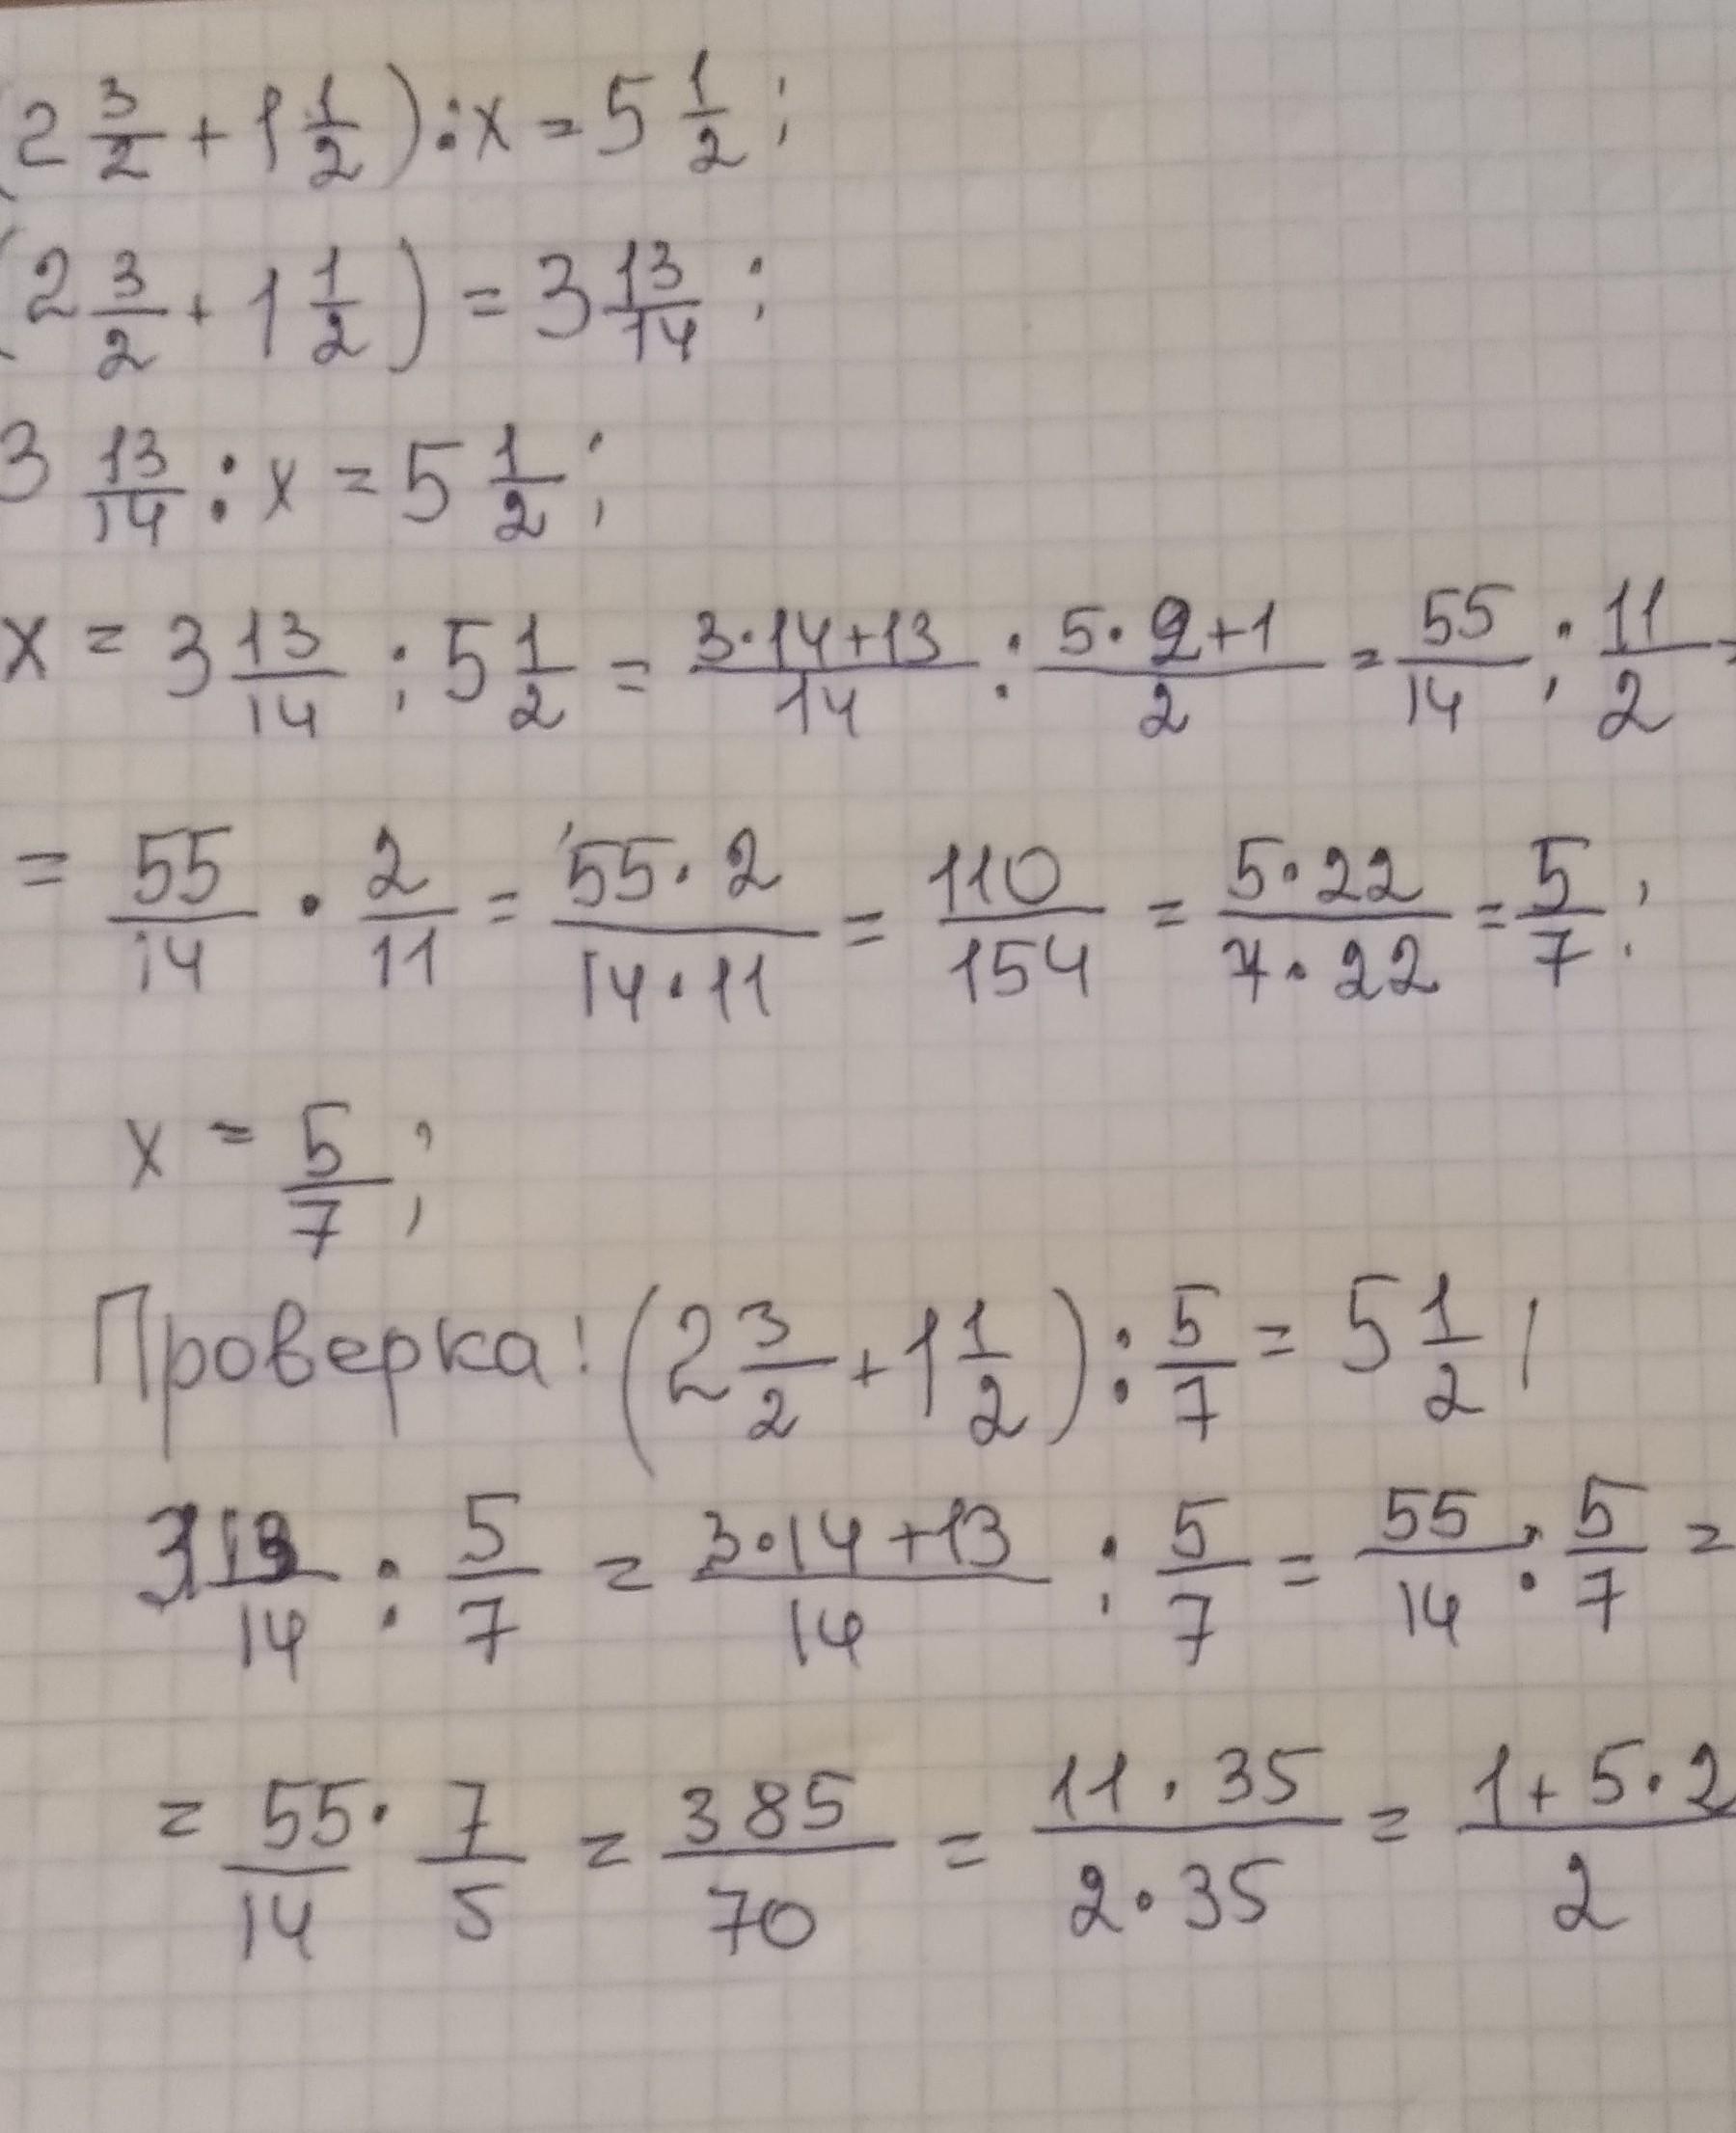 (2 3/2 + 1 1/2) : x = 5 1/2 ;
(2 3/2 + 1 1/2) = 3 13/14 ;
3 13/14 : x = 5 1/2 ;
x = 3 13/14 : 5 1/2 = (3·14+13)/14 : (5·2+1)/2 = 55/14 : 11/2 =
= 55/14 · 2/11 = (55·2)/(14·11) = 110/154 = (5·22)/(7·22) = 5/7 ;
x = 5/7 ;
Проверка: (2 3/2 + 1 1/2) : 5/7 = 5 1/2 ;
3 13/14 : 5/7 = (3·14+13)/14 : 5/7 = 55/14 : 5/7 =
= 55/14 · 7/5 = 385/70 = (11·35)/(2·35) = (1+5·2)/2